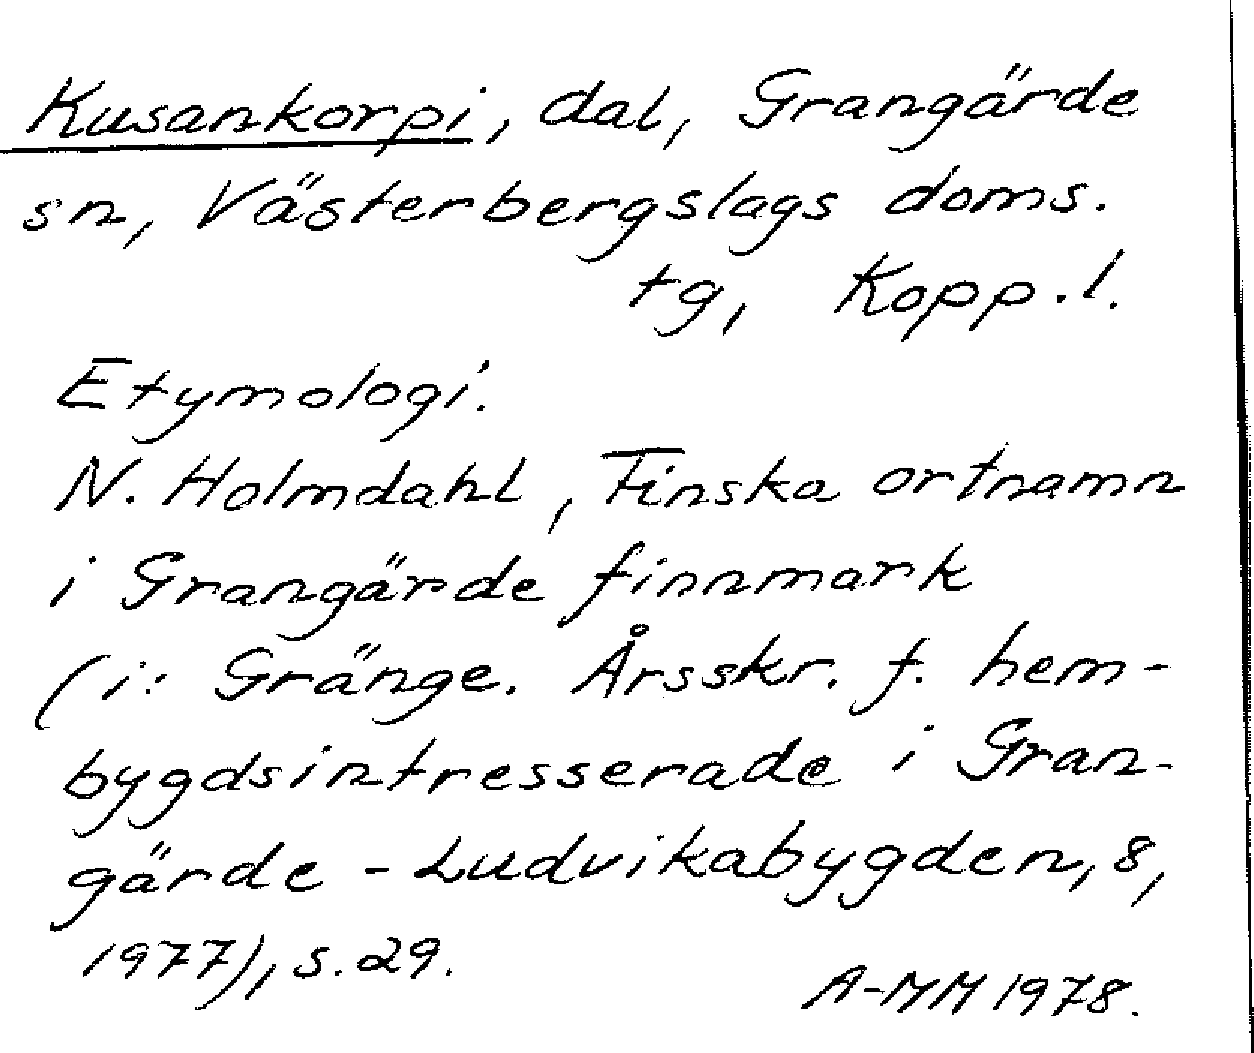 Kusankorpi, dal, Grangärde
sn, Västerbergslags doms.
tg, Kopp.l.
Etymologi.
N. Holmdahl, Finska ortnamn
i Grangärde finnmark
(i: Gränge. Årsskr. f. hem-
bygdsintresserade i Gran-
gärde - Ludvikabygden, 8,
1977), s. 29.
A-MM 1978.